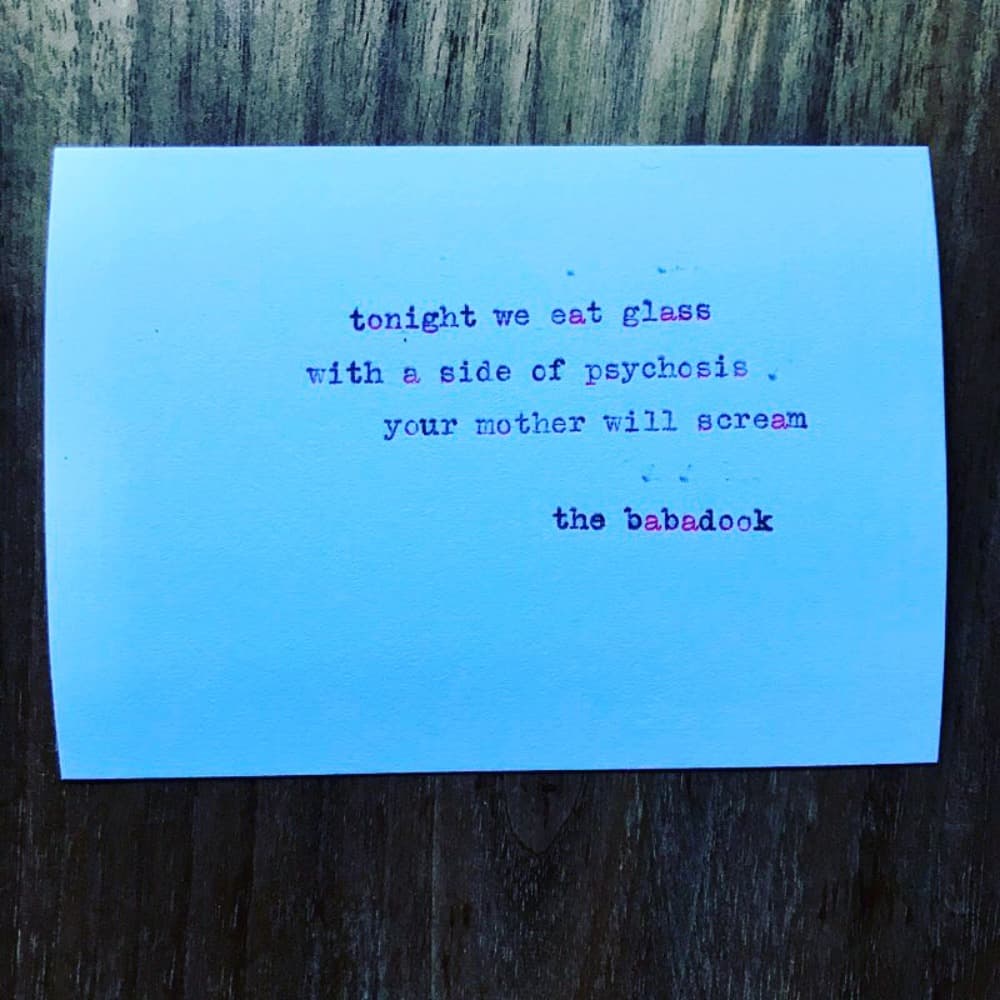 tonight we eat glass
with a side of psychosis .
your mother will scream
the babadook